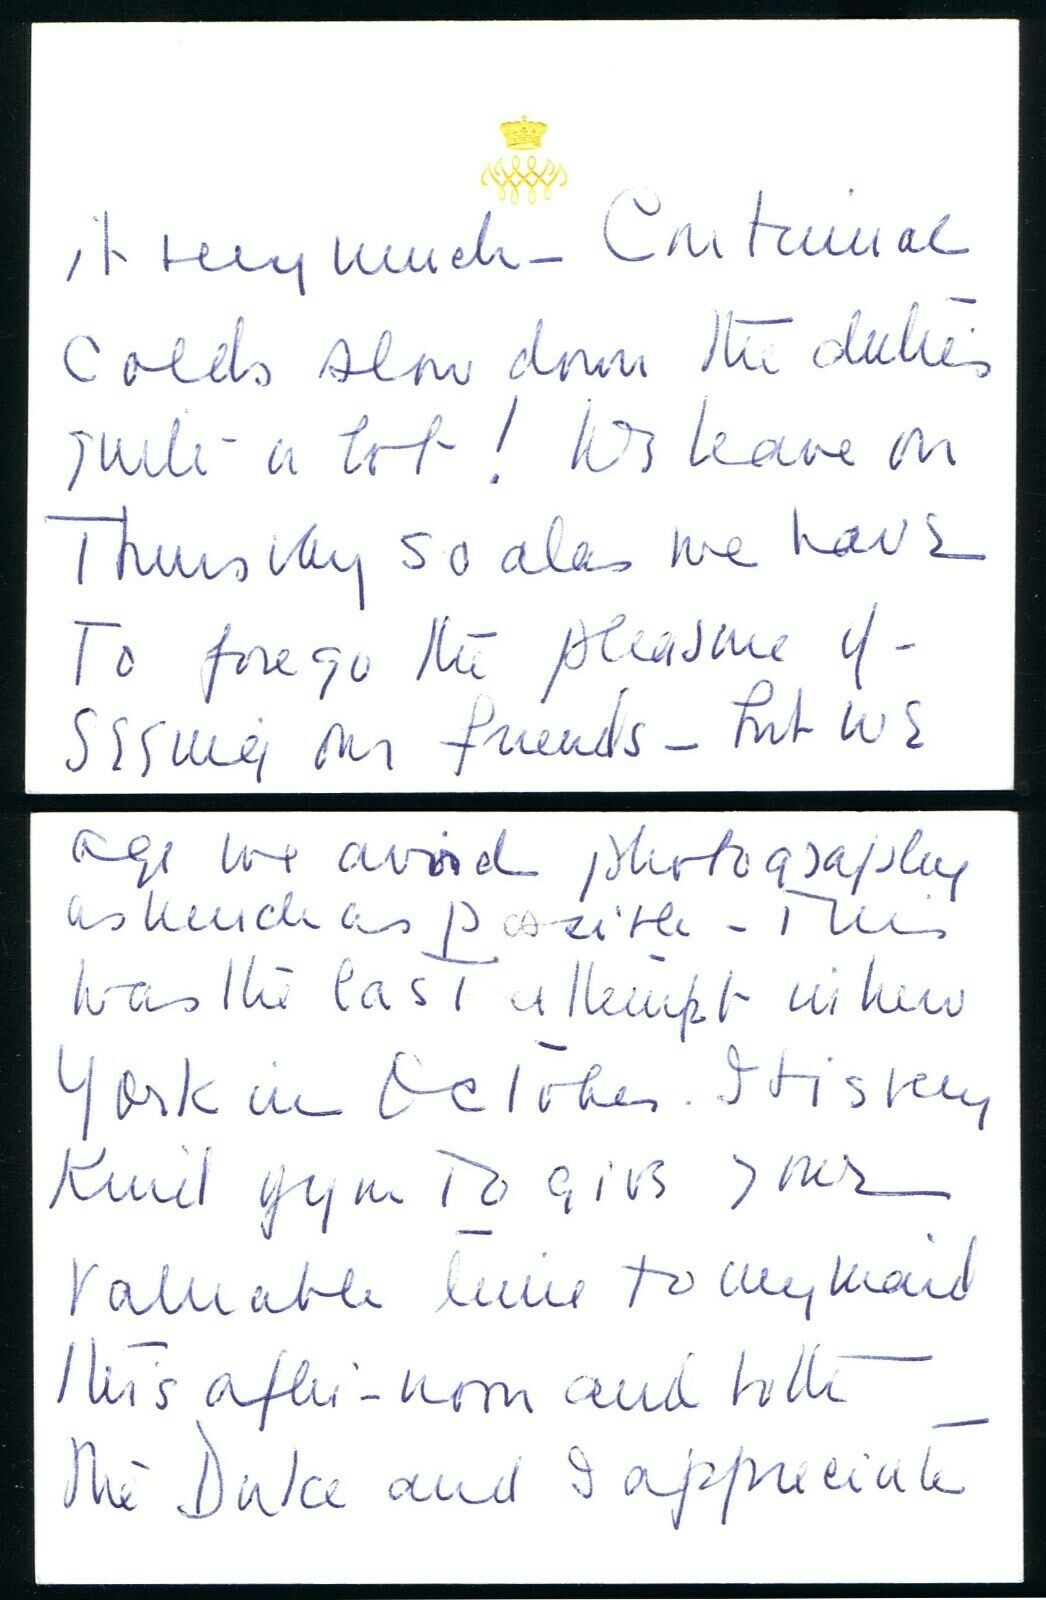 it very much – Continual
colds slow down the duties
quite a lot! We leave on
Thursday so alas we have
to forego the pleasure of –
seeing our friends – but we
age we avoid photography
as much as possible – This
was the last attempt in New
York in October. It is very
kind of you to give your
valuable time to my maid
this after-noon and both
the Duke and I appreciate